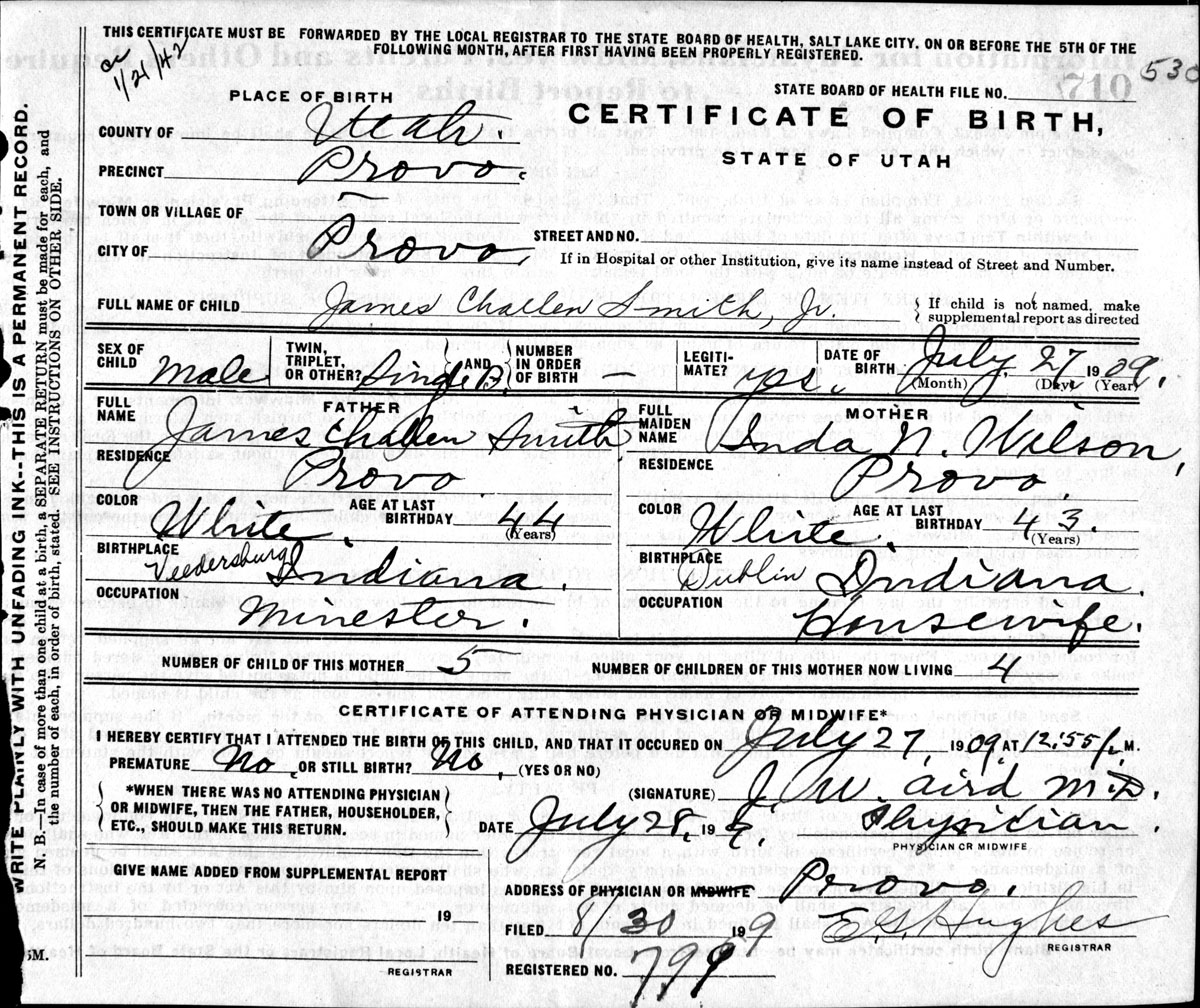 THIS CERTIFICATE MUST BE FORWARDED BY THE LOCAL REGISTRAR TO THE STATE BOARD OF HEALTH, SALT LAKE CITY. ON OR BEFORE THE 5TH OF THE
FOLLOWING MONTH, AFTER FIRST HAVING BEEN PROPERLY REGISTERED.
1/21/42
530
STATE BOARD OF HEALTH FILE NO.
PLACE OF BIRTH
CERTIFICATE OF BIRTH,
STATE OF UTAH
COUNTY OF Utah
PRECINCT Provo.
TOWN OR VILLAGE OF
CITY OF Provo,
STREET AND NO.
If in Hospital or other Institution, give its name instead of Street and Number.
FULL NAME OF CHILD James Challen Smith, Jr. { If child is not named, make
supplemental report as directed
SEX OF CHILD Male
TWIN, TRIPLET, OR OTHER? Single { AND } NUMBER IN ORDER OF BIRTH —
LEGITI-MATE? yes.
DATE OF BIRTH July, 27 1909.
(Month) (Day) (Year)
FATHER
FULL NAME James Challen Smith
RESIDENCE Provo
COLOR White. AGE AT LAST BIRTHDAY 44
(Years)
BIRTHPLACE Veedersburg Indiana.
OCCUPATION Minester.
MOTHER
FULL MAIDEN NAME Inda N. Wilson,
RESIDENCE Provo.
COLOR White. AGE AT LAST BIRTHDAY 43.
(Years)
BIRTHPLACE Dublin Indiana.
OCCUPATION Housewife.
NUMBER OF CHILD OF THIS MOTHER 5 NUMBER OF CHILDREN OF THIS MOTHER NOW LIVING 4
CERTIFICATE OF ATTENDING PHYSICIAN OR MIDWIFE*
I HEREBY CERTIFY THAT I ATTENDED THE BIRTH OF THIS CHILD, AND THAT IT OCCURED ON July 27, 1909, AT 12:55 M.
PREMATURE No, OR STILL BIRTH? No, (YES OR NO)
*WHEN THERE WAS NO ATTENDING PHYSICIAN
OR MIDWIFE, THEN THE FATHER, HOUSEHOLDER,
ETC., SHOULD MAKE THIS RETURN.
(SIGNATURE) J. W. Aird M.D.
DATE July 28, 19 9. Physician.
PHYSICIAN OR MIDWIFE
GIVE NAME ADDED FROM SUPPLEMENTAL REPORT
19
REGISTRAR
ADDRESS OF PHYSICIAN OR MIDWIFE Provo.
FILED 8/30 19 9 E. G. Hughes
REGISTRAR
REGISTERED NO. 799
WRITE PLAINLY WITH UNFADING INK--THIS IS A PERMANENT RECORD.
N. B.—In case of more than one child at a birth, a SEPARATE RETURN must be made for each, and
the number of each, in order of birth, stated. SEE INSTRUCTIONS ON OTHER SIDE.